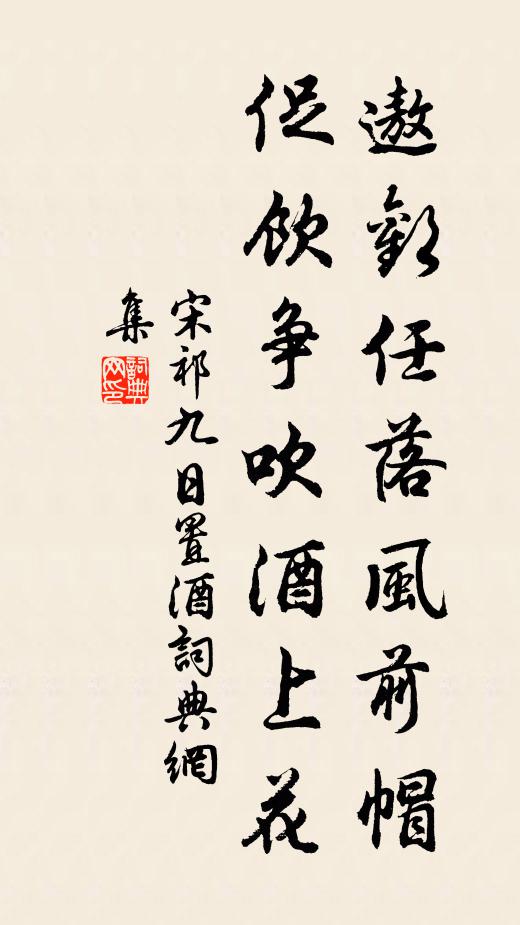 遨歡任落風前帽
促飲争吹酒上花
宋祁九日置酒詞典網
集
詞典
网印